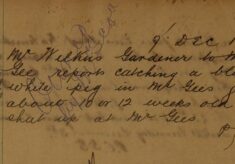 9 DEC 1
Mr Wilkins Gardener to M
Gee reports catching a bl
white pig in Mr Gees
about 10 or 12 weeks old
shut up at Mr Gees